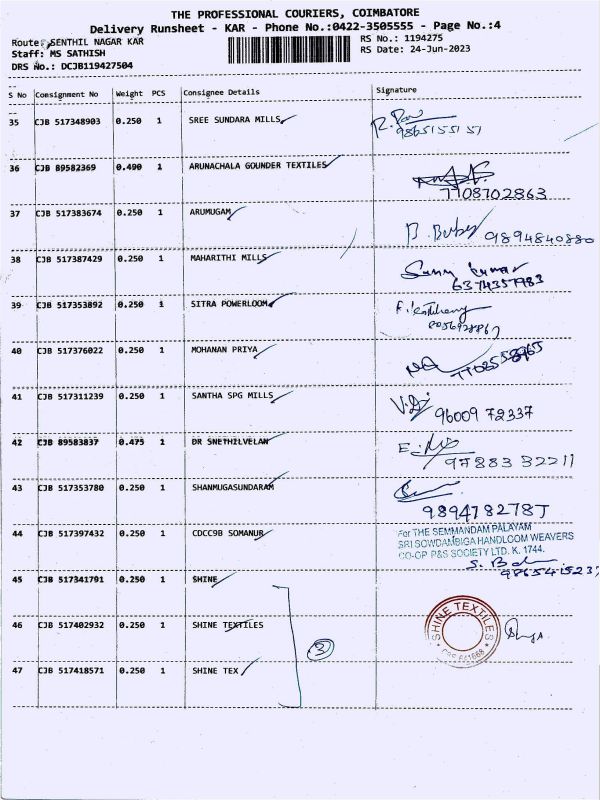 THE PROFESSIONAL COURIERS, COIMBATORE
Delivery Runsheet - KAR - Phone No.:0422-3505555 - Page No.:4
Route: SENTHIL NAGAR KAR
RS No.: 1194275
Staff: MS SATHISH
RS Date: 24-Jun-2023
DRS No.: DCJB119427504
S No Consignment No Weight PCS Consignee Details Signature
35 CJB 517348903 0.250 1 SREE SUNDARA MILLS
9865155157
36 CJB 89582369 0.490 1 ARUNACHALA GOUNDER TEXTILES
7708702863
37 CJB 517383674 0.250 1 ARUMUGAM
9894840880
38 CJB 517387429 0.250 1 MAHARITHI MILLS
6374357983
39 CJB 517353892 0.250 1 SITRA POWERLOOM
40 CJB 517376022 0.250 1 MOHANAN PRIYA
41 CJB 517311239 0.250 1 SANTHA SPG MILLS
96009 72337
42 CJB 89583837 0.475 1 DR SNETHILVELAN
97883 32211
43 CJB 517353780 0.250 1 SHANMUGASUNDARAM
44 CJB 517397432 0.250 1 CDCC9B SOMANUR
For THE SEMMANDAM PALAYAM
SRI SOWDAMBIGA HANDLOOM WEAVERS
CO-OP P&S SOCIETY LTD. K. 1744.
45 CJB 517341791 0.250 1 SHINE
46 CJB 517402932 0.250 1 SHINE TEXTILES
3
SHINE TEXTILES
47 CJB 517418571 0.250 1 SHINE TEX